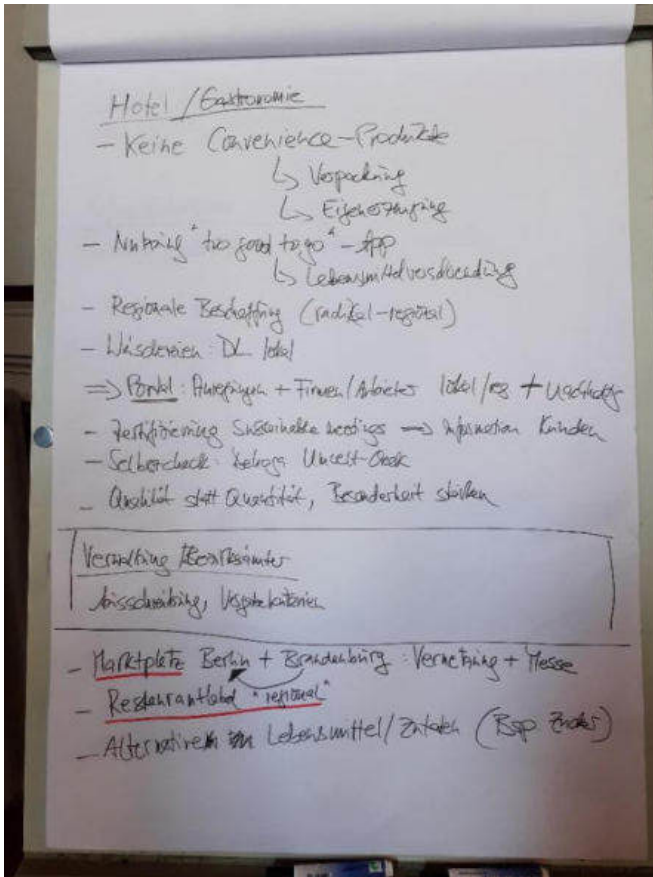 Hotel / Gastronomie
- Keine Convenience-Produkte
↳ Verpackung
↳ Eigenerzeugung
- Nutzung "too good to go" - App
↳ Lebensmittelverschwendung
- Regionale Beschaffung (radikal-regional)
- Wäschereien: DL lokal
=> Portal: Anregungen + Firmen/Anbieter lokal/reg + nachhaltig
- Zertifizierung Sustainable Meetings => Information Kunden
- Selbercheck: Dehoga Umwelt-Check
- Qualität statt Quantität, Besonderheit stärken
Verwaltung Bezirksämter
Ausschreibung, Vergabekriterien
- Marktplatz Berlin + Brandenburg: Vernetzung + Messe
- Restaurantlabel "regional"
- Alternativen Lebensmittel/Zutaten (Bsp Zander)